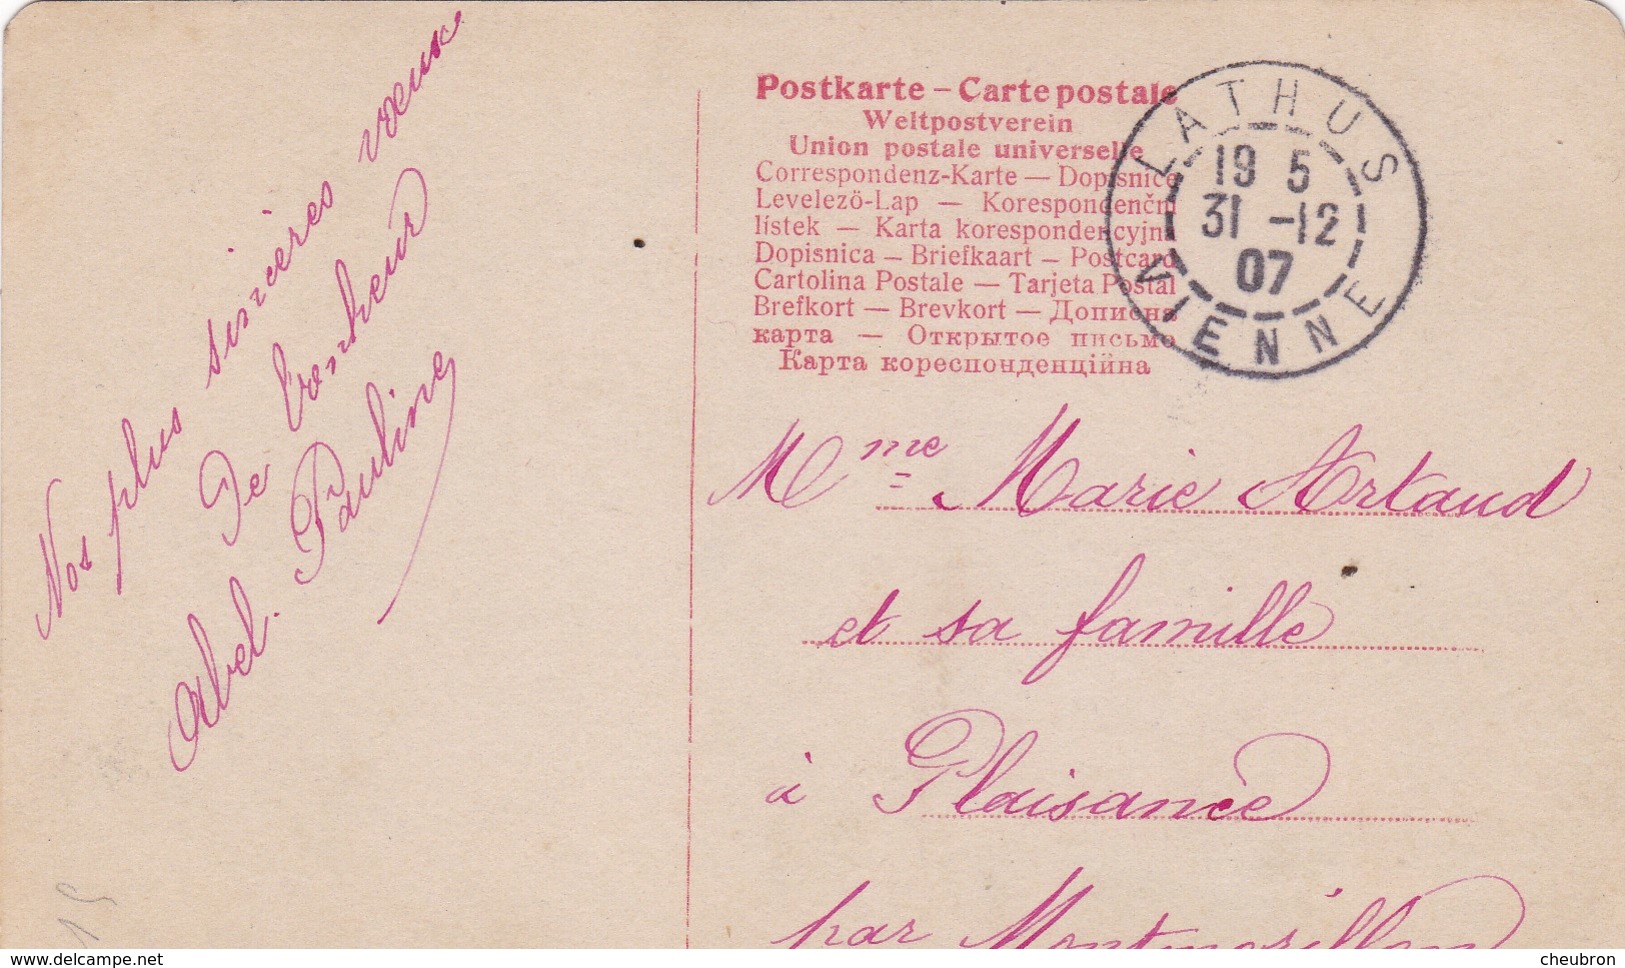 Nos plus sincères vœux
De bonheur
Abel. Pauline
Postkarte – Carte postale
Weltpostverein
Union postale universelle
Correspondenz-Karte — Dopisnice
Levelező-Lap — Korespondenční
lístek — Karta korespondencyjna
Dopisnica — Briefkaart — Postcard
Cartolina Postale — Tarjeta Postal
Brefkort — Brevkort — Дописна
карта — Открытое письмо
Карта кореспонденційна
LATHUS
19 5
31 -12
07
VIENNE
Mme Marie Artaud
et sa famille
à Plaisance
par Montmorillon
15
www.delcampe.net
cheubron